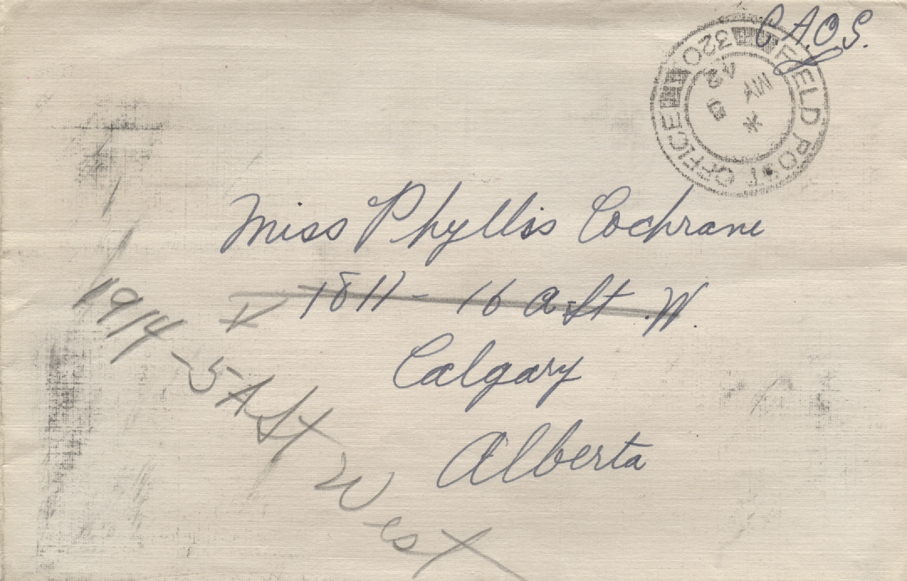 C.A.O.S.
FIELD POST OFFICE 320
* MY 42
Miss Phyllis Cochrane
1811 - 16 A. St. W.
Calgary
Alberta
1914 - 5A St West